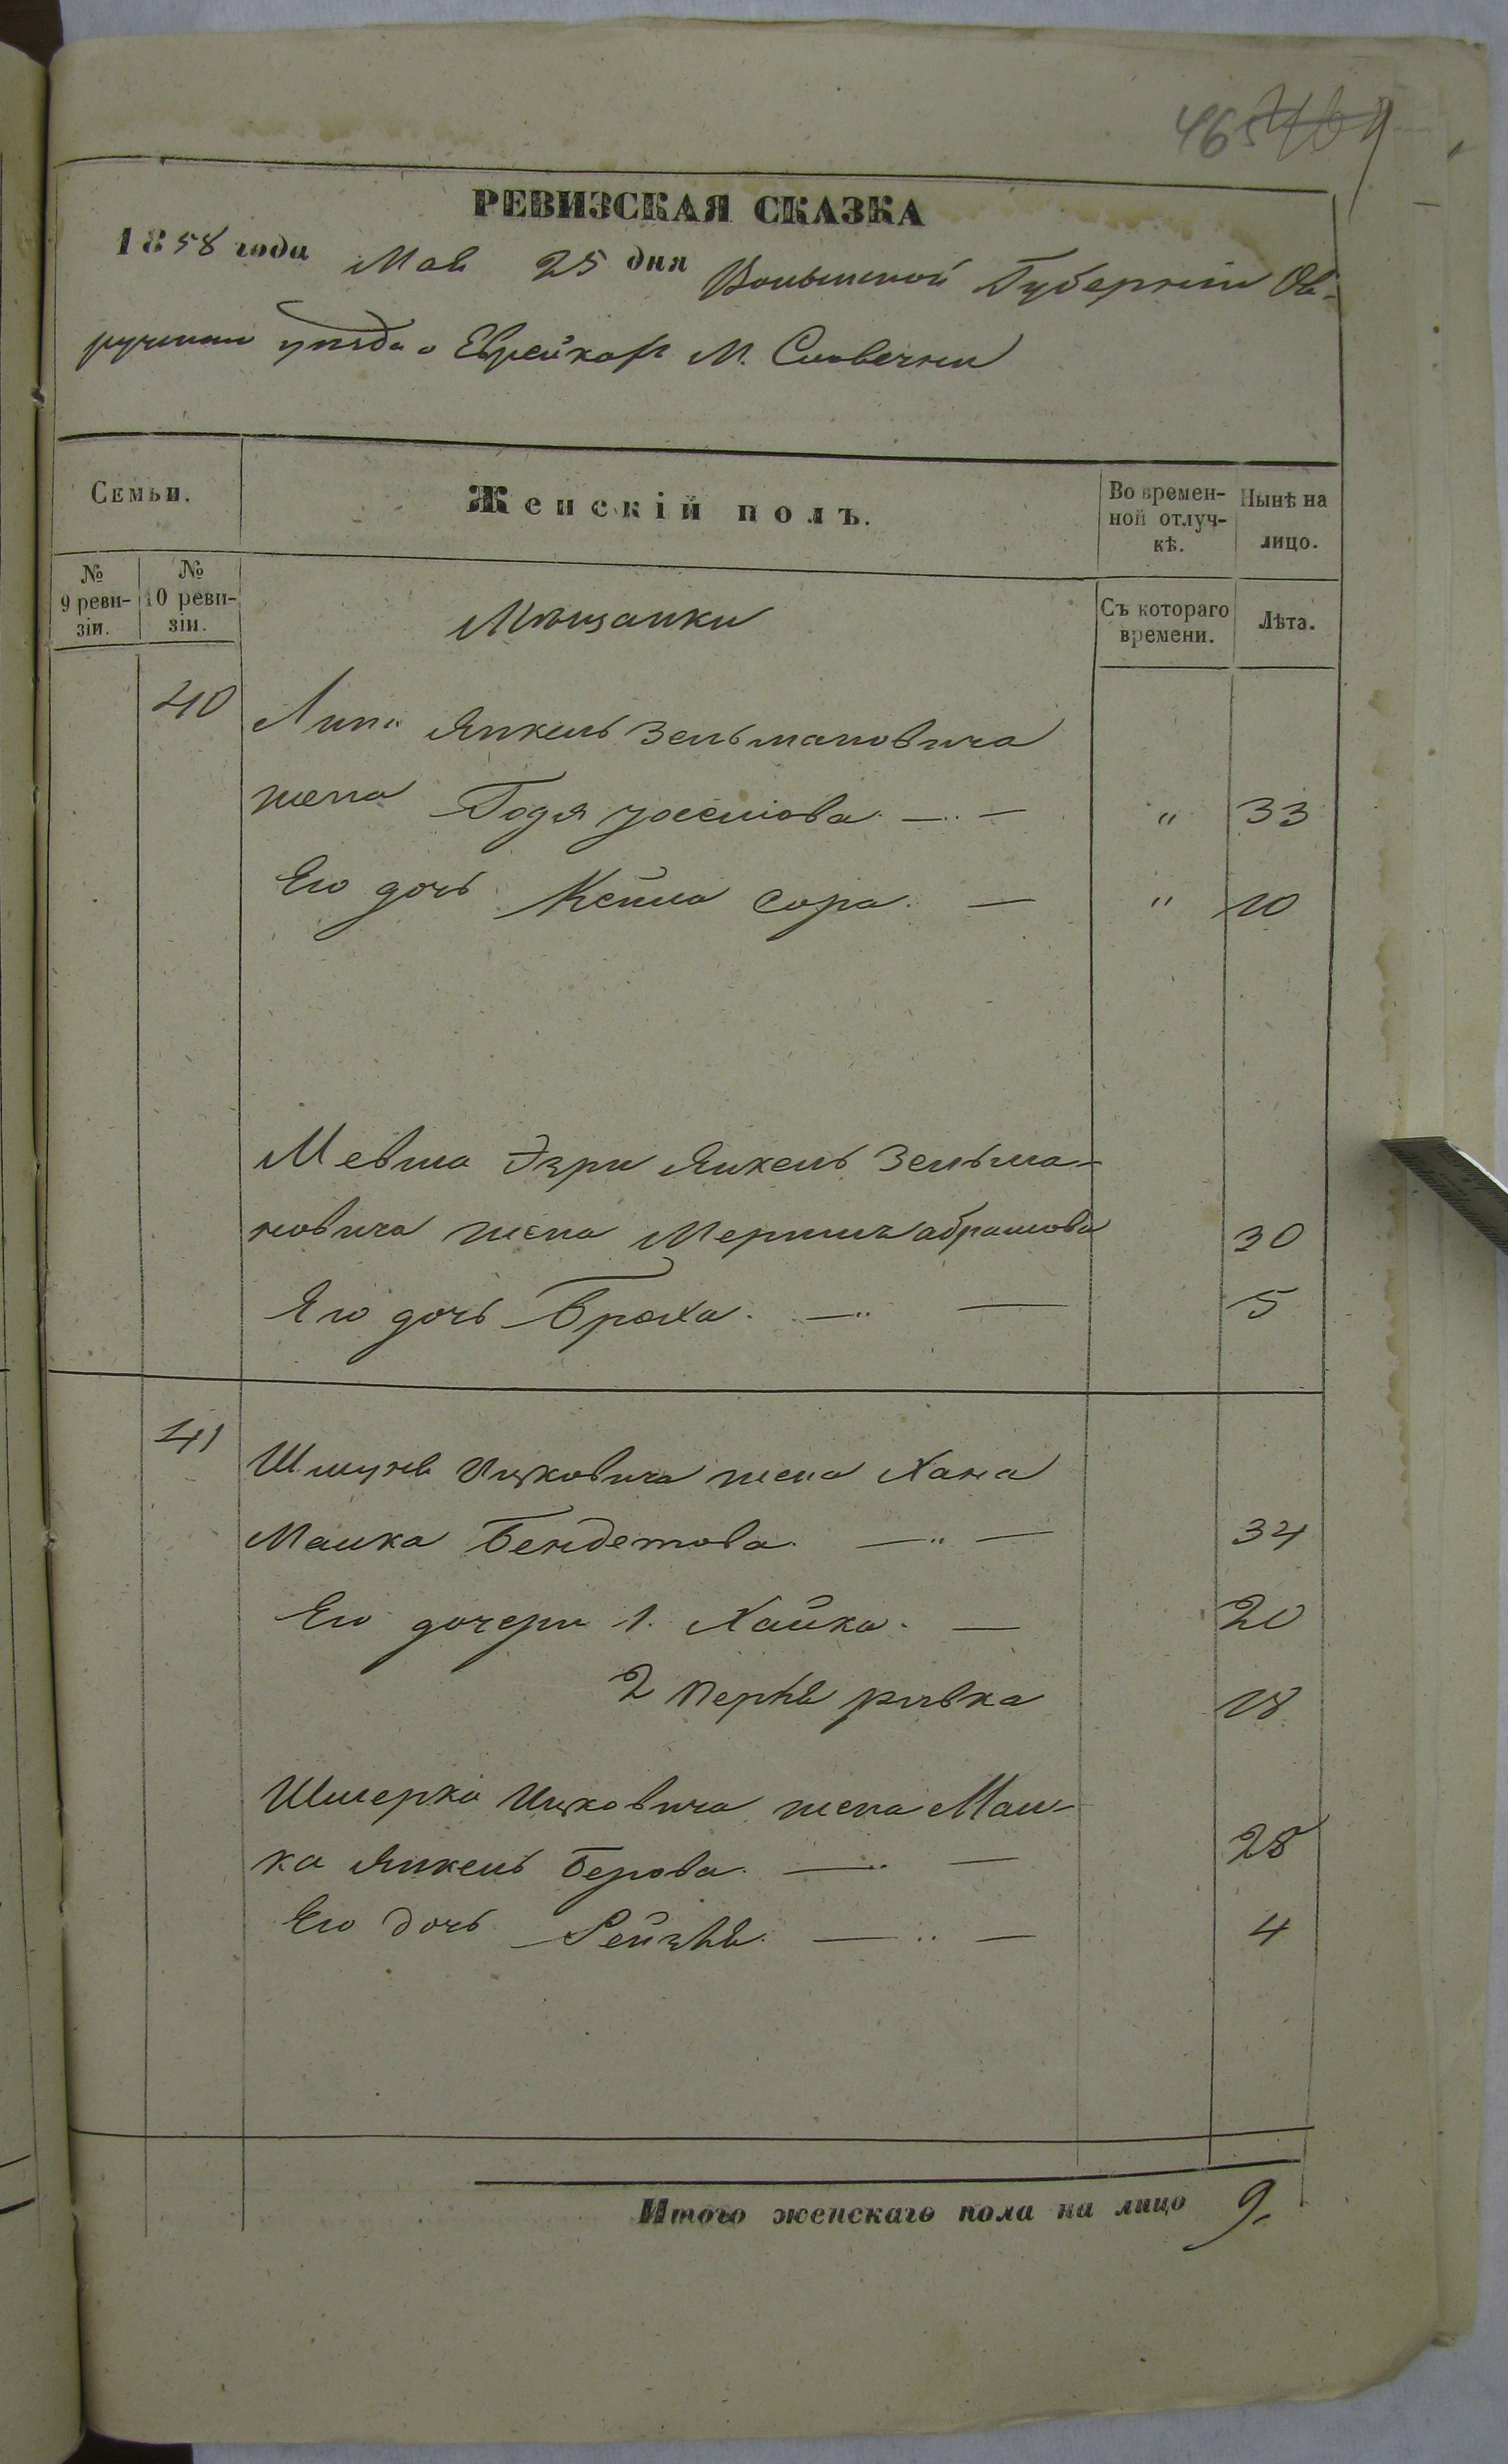 465
РЕВИЗСКАЯ СКАЗКА
1858 года Мая 25 дня Волынской Губерніи Ов-
ручскаго уѣзда о Еврейкахъ М. Словечни
Семьи.
Женскій полъ.
Во времен-
ной отлуч-
кѣ.
Нынѣ на
лицо.
№
9 реви-
зіи.
№
10 реви-
зіи.
Съ котораго
времени.
Лѣта.
Мѣщанки
40 Липы Янкель Зельмановича
жена Годя Іоселіова — " 33
Его дочь Кейла Сора — " 10
Мевша Эзри Янкель Зельма-
новича жена Мерима Абрамова 30
Его дочь Броха 5
41 Шмуля Ицковича жена Хана
Малка Бендетова 34
Его дочери 1. Хайка 20
2 Перля Ривка 18
Шмерка Ицковича жена Мал-
ка Янкель Берова 28
Его дочь Рейзля 4
Итого женскаго пола на лицо 9.